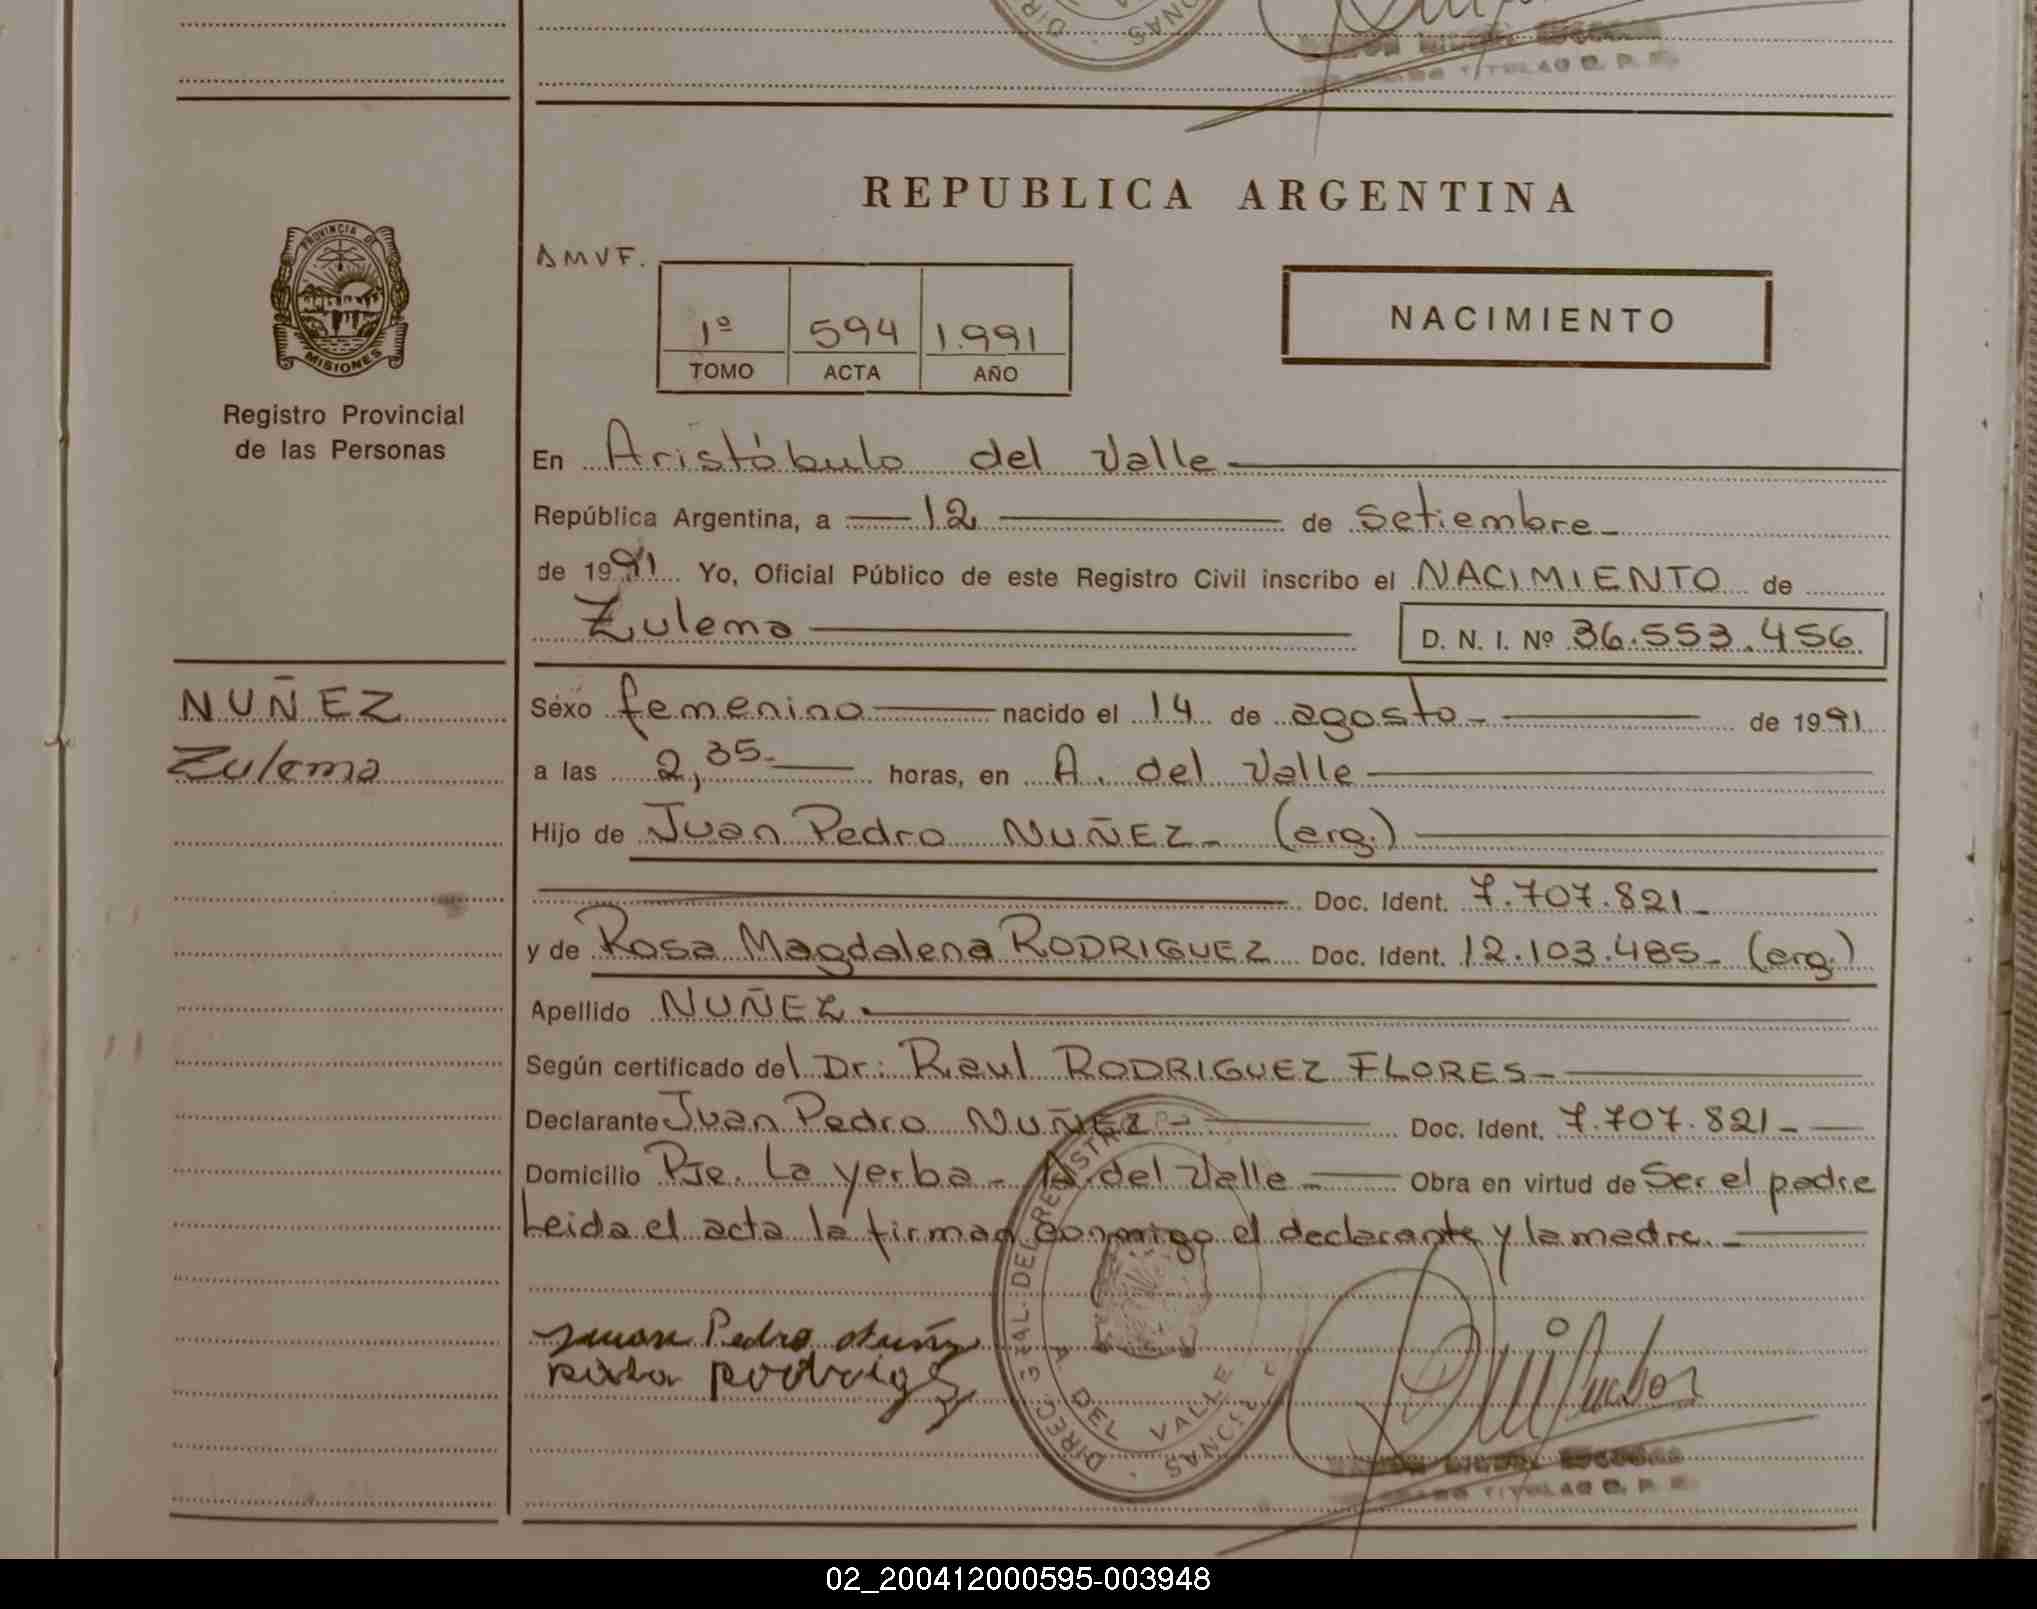 TITULAO R. P. P.
REPUBLICA ARGENTINA
PROVINCIA DE
MISIONES
Registro Provincial
de las Personas
AMVF.
1º 594 1.991
TOMO ACTA AÑO
NACIMIENTO
En Aristóbulo del Valle
República Argentina, a 12 de Setiembre
de 1991 Yo, Oficial Público de este Registro Civil inscribo el NACIMIENTO de
Zulema D. N. I. Nº 36.553.456
NUÑEZ
Zulema
Sexo femenino nacido el 14 de agosto de 1991
a las 2,35 horas, en A. del Valle
Hijo de Juan Pedro NUÑEZ (arg.)
Doc. Ident. 7.707.821
y de Rosa Magdalena RODRIGUEZ Doc. Ident. 12.103.485 (arg.)
Apellido NUÑEZ
Según certificado del Dr: Raul RODRIGUEZ FLORES
Declarante Juan Pedro NUÑEZ Doc. Ident. 7.707.821
Domicilio Pje. La yerba - A. del Valle Obra en virtud de Ser el padre
Leida el acta la firman conmigo el declarante y la madre.
Juan Pedro Nuñez
DEL VALLE
02_200412000595-003948